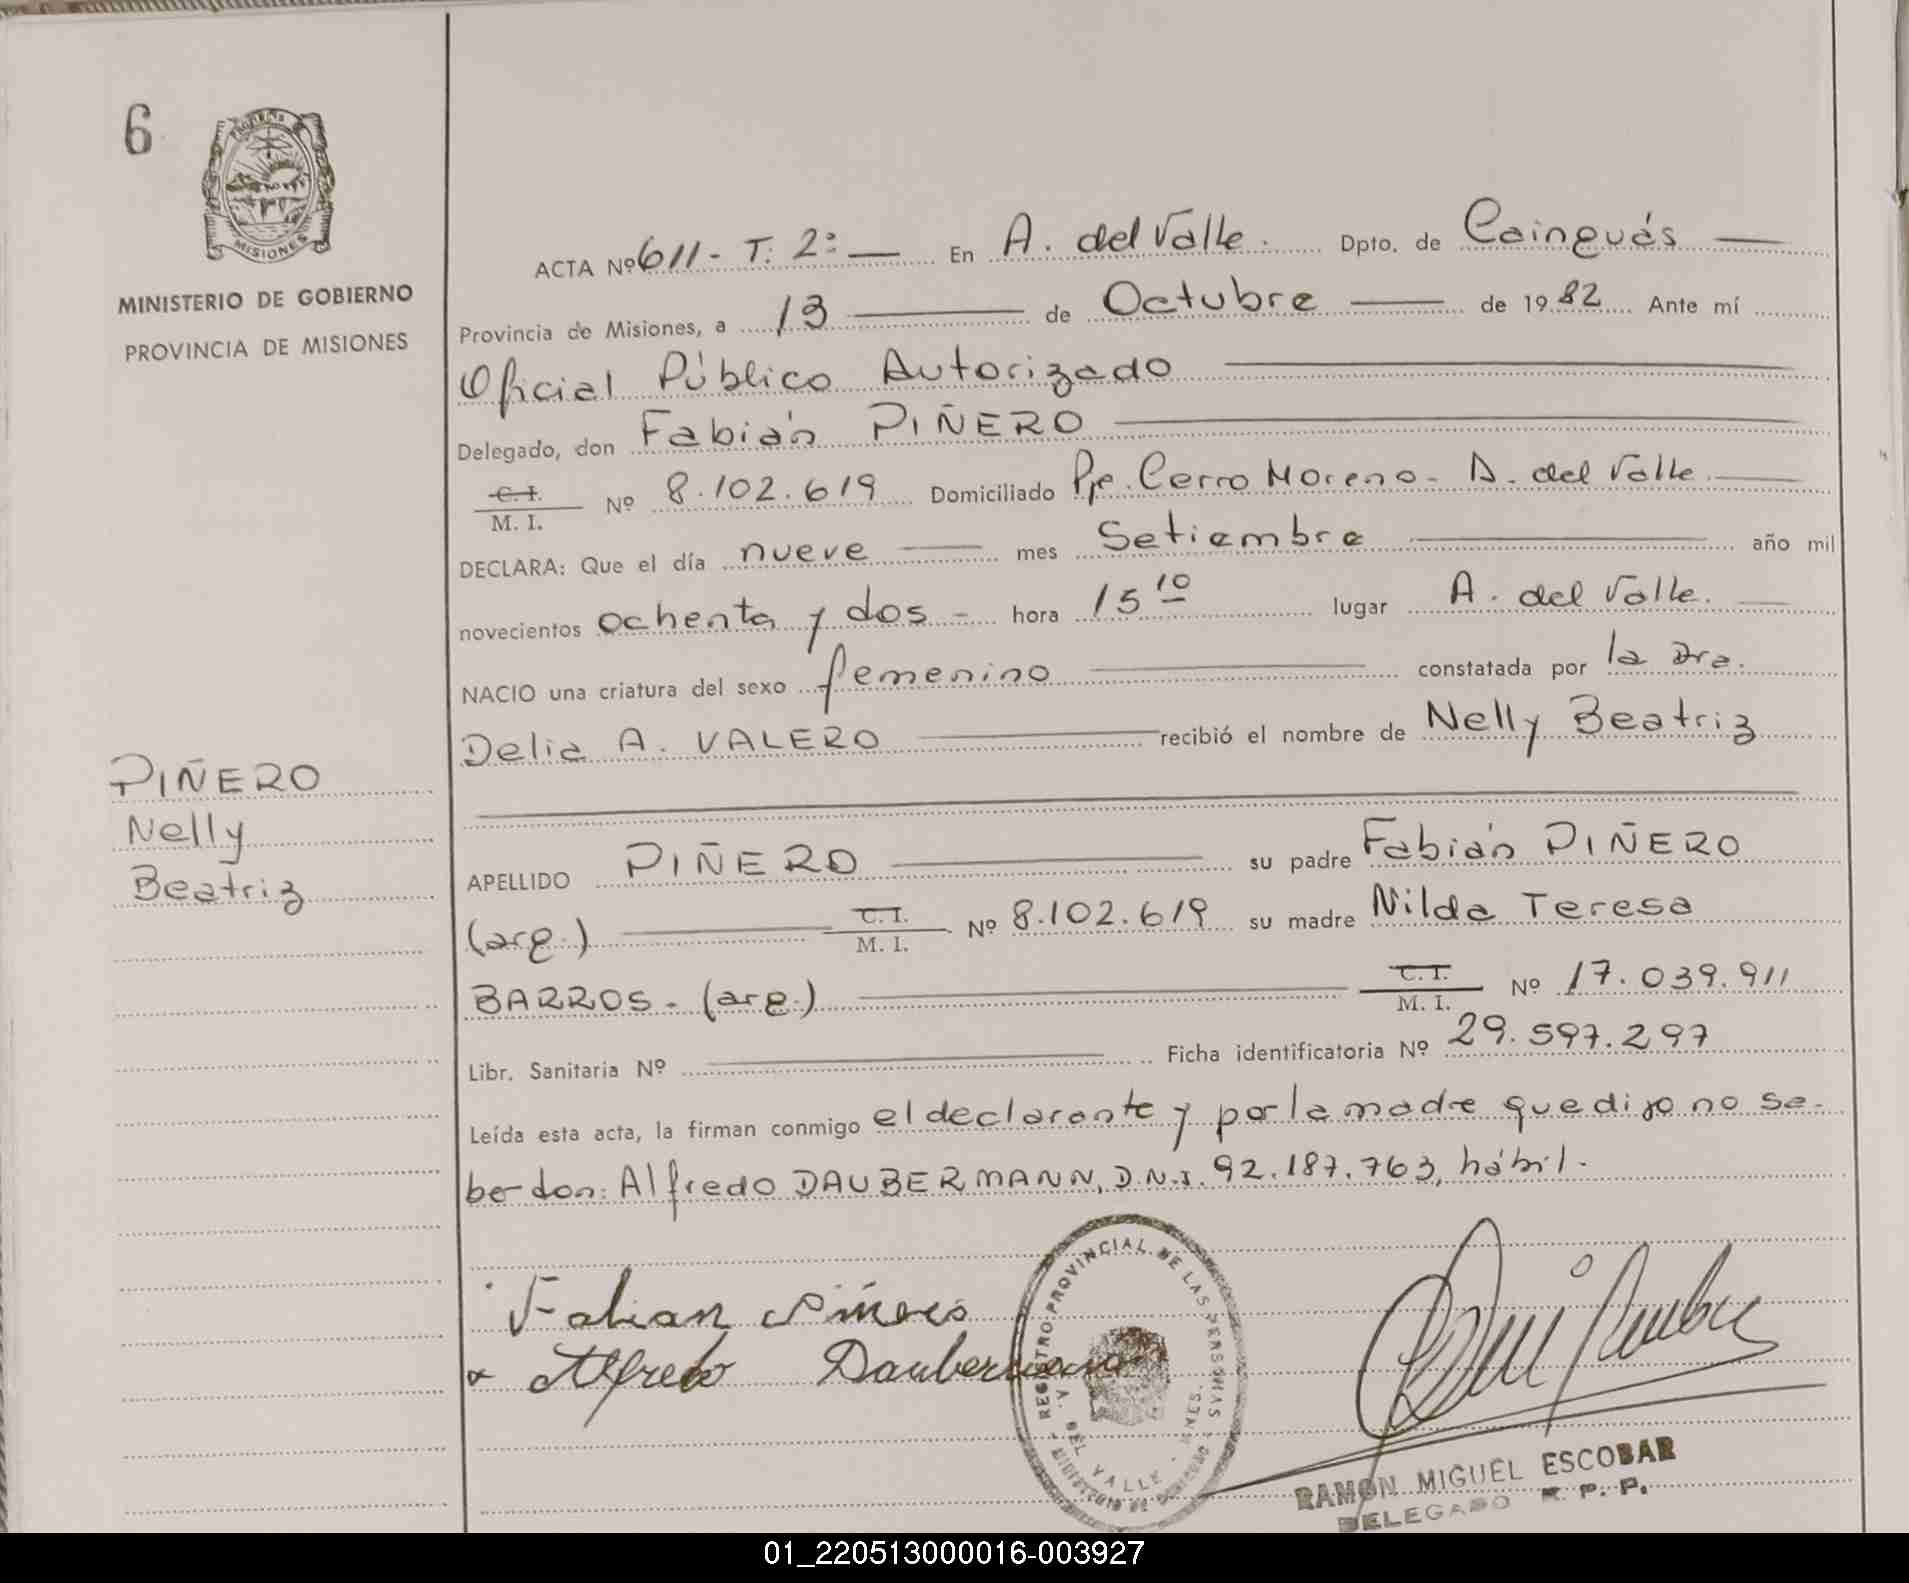 6
PROVINCIA
MISIONES
MINISTERIO DE GOBIERNO
PROVINCIA DE MISIONES
PIÑERO
Nelly
Beatriz
ACTA Nº 611 - T: 2º — En A. del Valle. Dpto. de Cainguás —
Provincia de Misiones, a 13 — de Octubre — de 1982 Ante mí
Oficial Público Autorizado —
Delegado, don Fabián PIÑERO —
C. I.
M. I. Nº 8.102.619 Domiciliado Pje. Cerro Moreno - A. del Valle. —
DECLARA: Que el día nueve — mes Setiembre — año mil
novecientos ochenta y dos - hora 15 10 lugar A. del Valle. —
NACIO una criatura del sexo femenino — constatada por la Dra.
Delia A. VALERO — recibió el nombre de Nelly Beatriz
APELLIDO PIÑERO — su padre Fabián PIÑERO
(arg.) — C. I.
M. I. Nº 8.102.619 su madre Nilda Teresa
BARROS - (arg.) — C. I.
M. I. Nº 17.039.911
Libr. Sanitaria Nº — Ficha identificatoria Nº 29.597.297
Leída esta acta, la firman conmigo el declarante y por la madre que dijo no sa-
ber don: Alfredo DAUBERMANN, D.N.I. 92.187.763, hábil.
Fabian Piñero
Alfredo Daubermann
REGISTRO PROVINCIAL DE LAS PERSONAS
A. DEL VALLE - MNES.
MINISTERIO DE GOBIERNO
RAMON MIGUEL ESCOBAR
DELEGADO R. P. P.
01_220513000016-003927